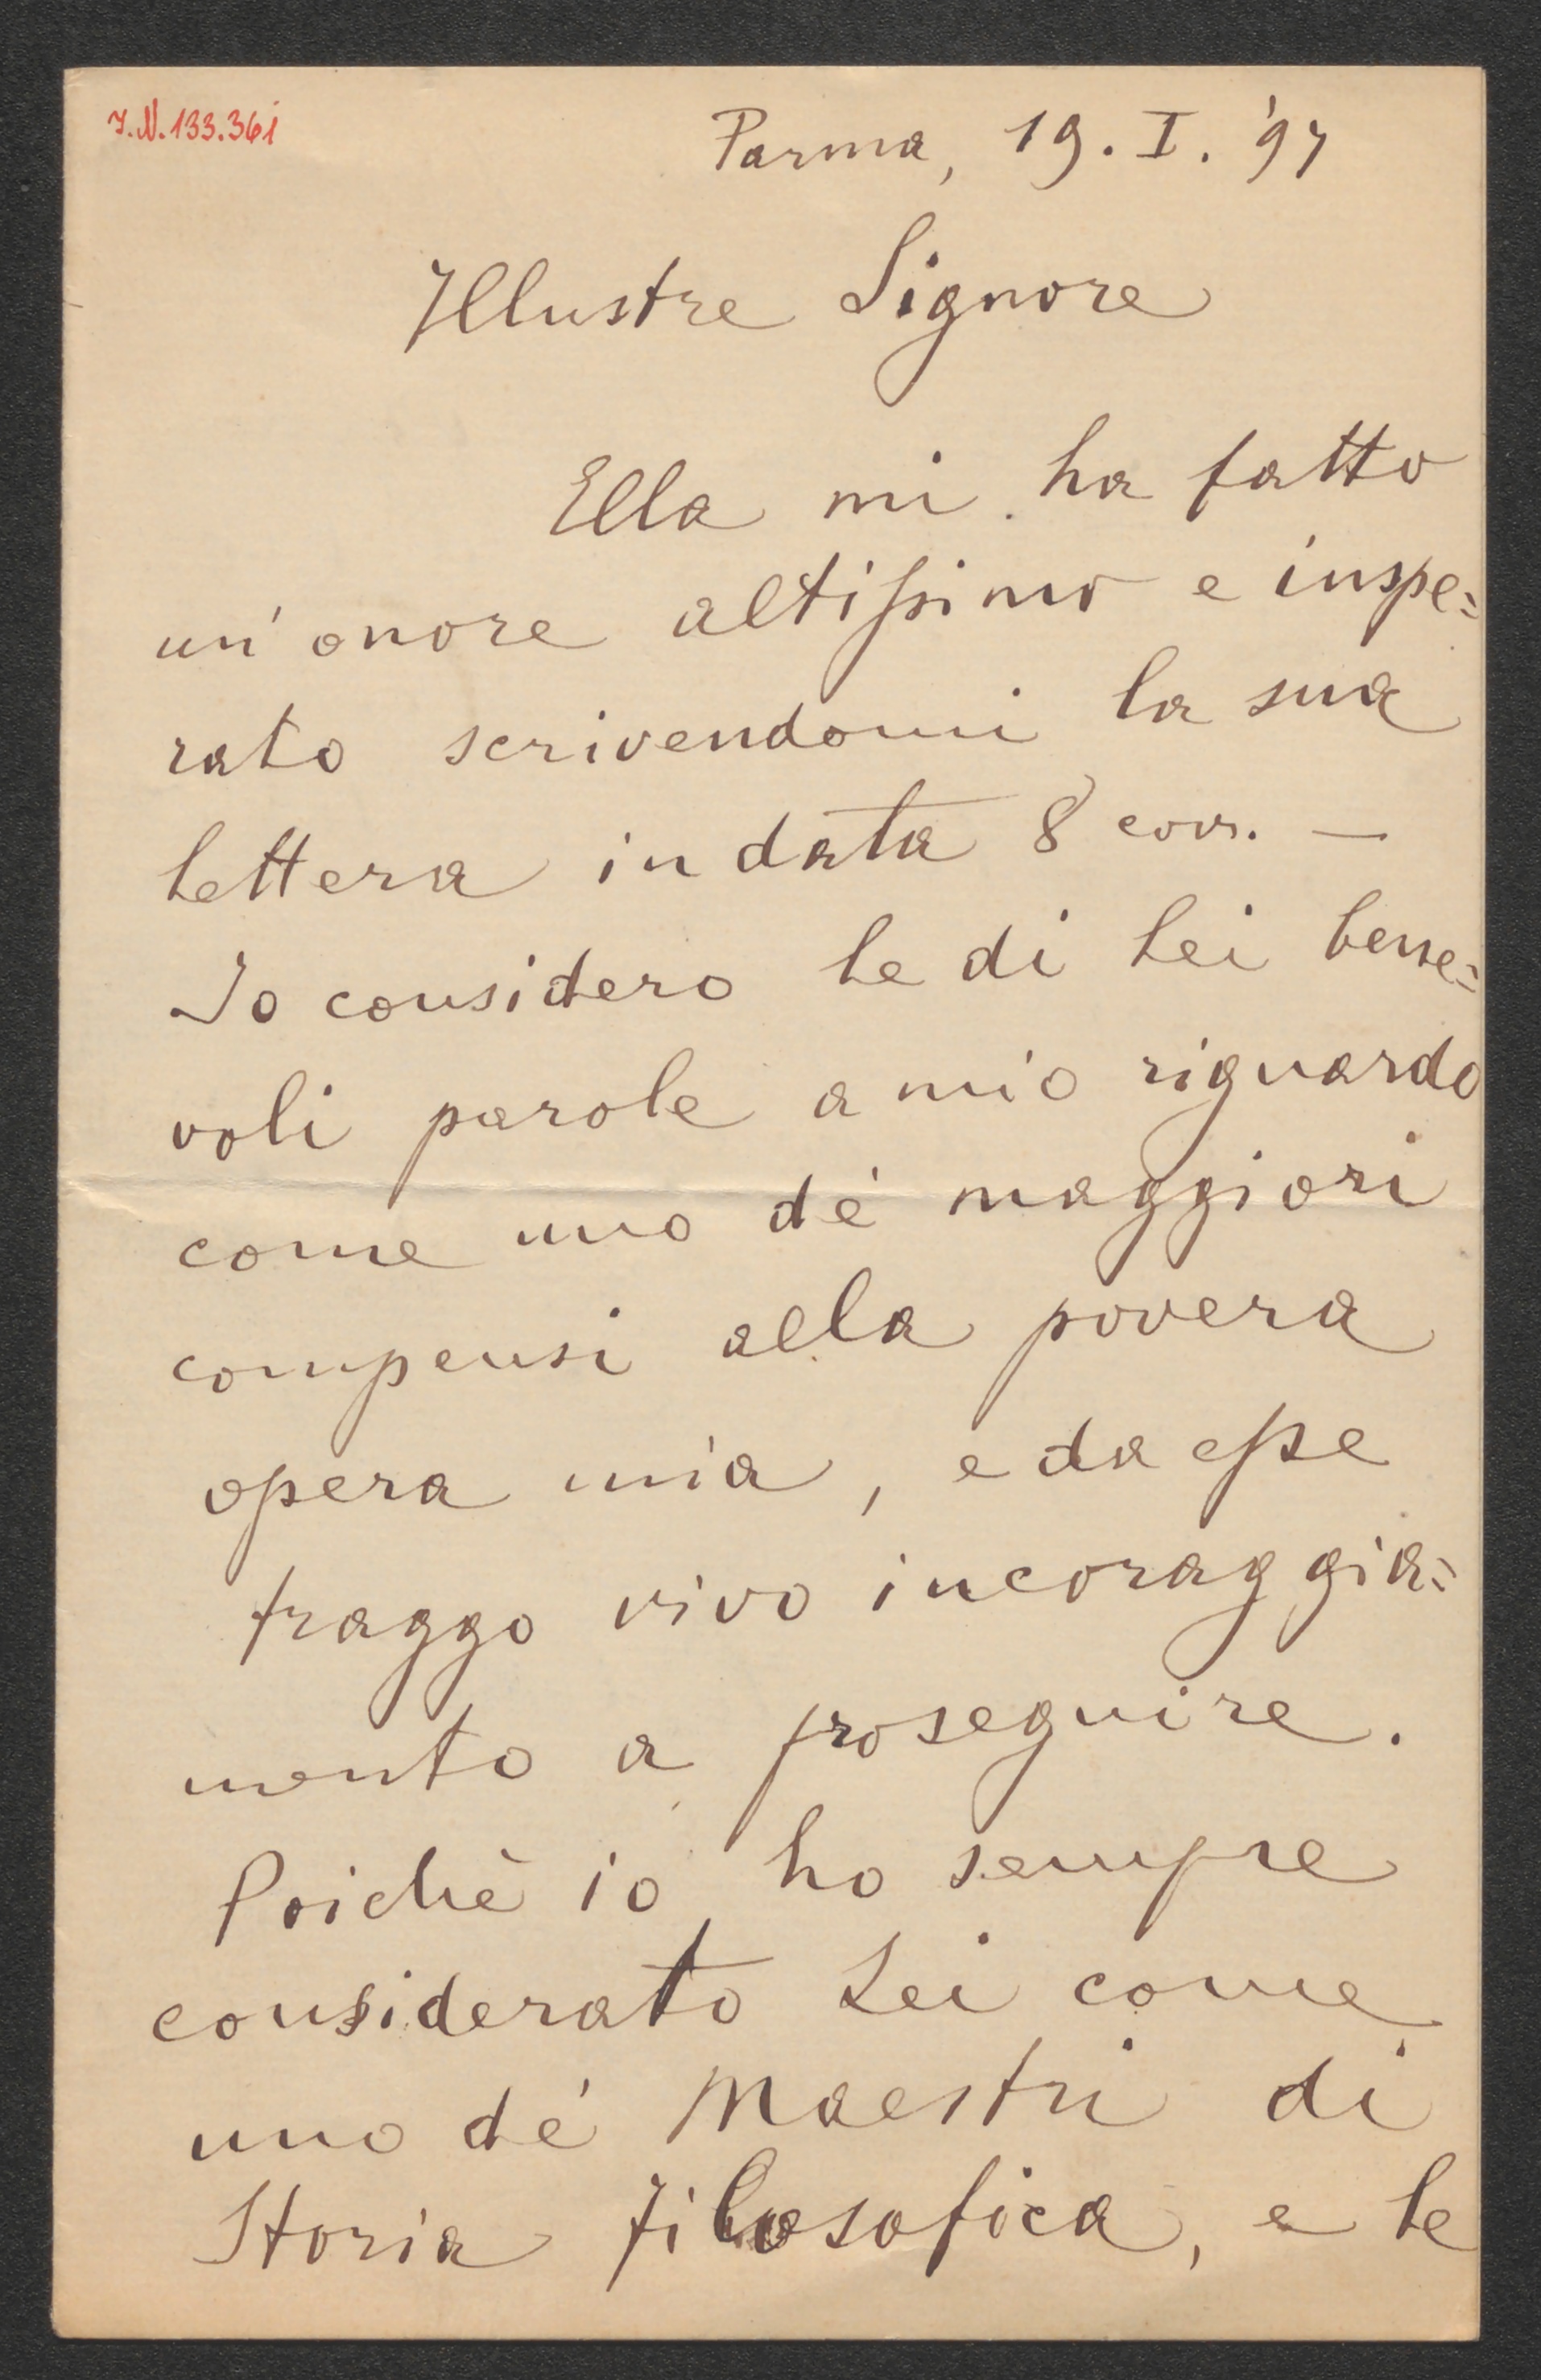 J.N. 133.361
Parma, 19. I. '97
Illustre Signore
Ella mi ha fatto
un'onore altissimo e inspe=
rato scrivendomi la sua
lettera in data 8 corr. —
Io considero le di Lei bene=
voli parole a mio riguardo
come uno de' maggiori
compensi alla povera
opera mia, e da esse
traggo vivo incoraggia=
mento a proseguire.
Poichè io ho sempre
considerato Lei come
uno de' Maestri di
Storia filosofica, e le